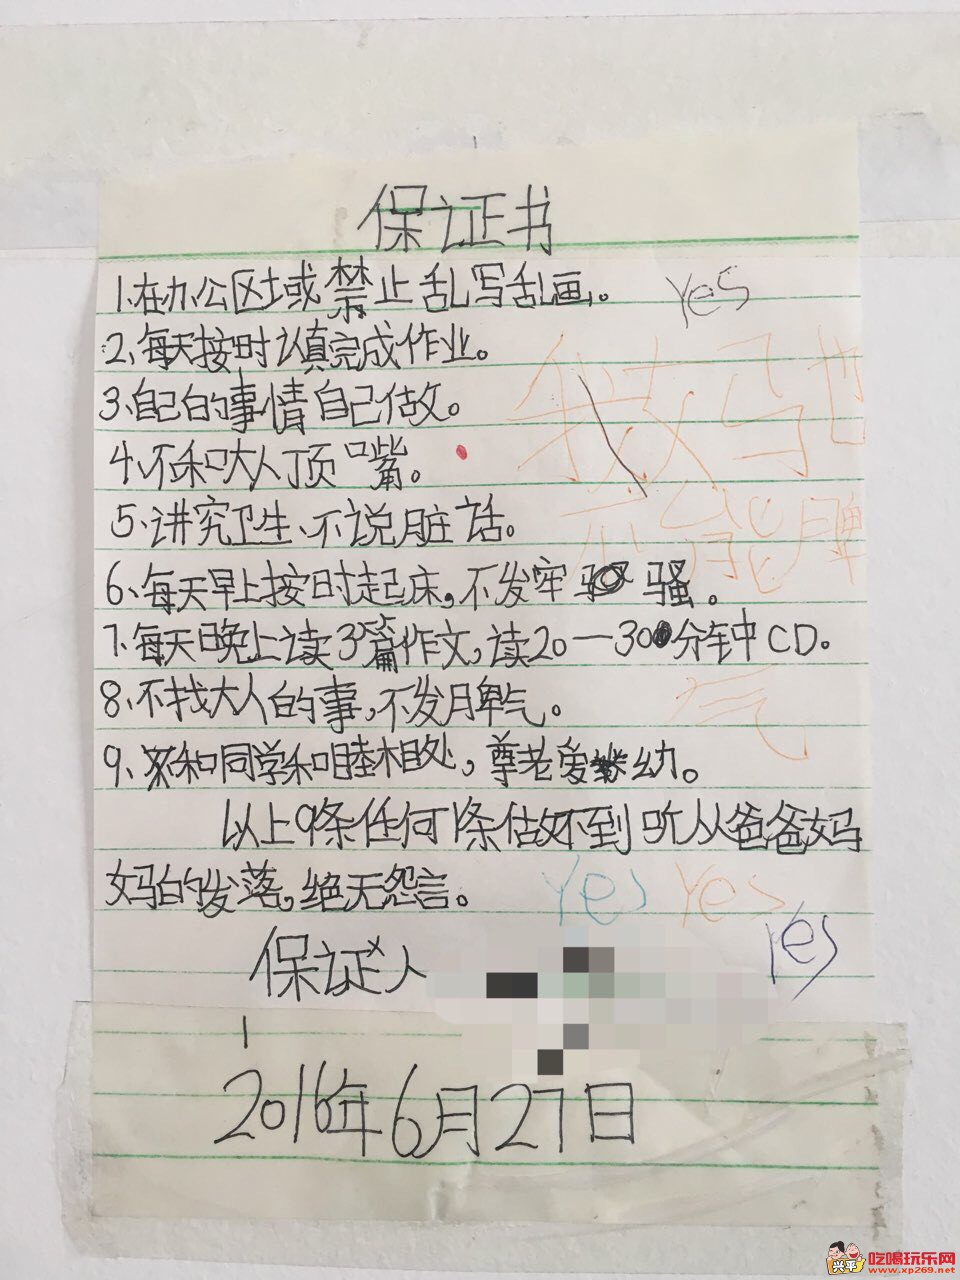 保证书
1、在办公区域或禁止乱写乱画。 yes
2、每天按时认真完成作业。
3、自己的事情自己做。
4、不和大人顶嘴。
5、讲究卫生、不说脏话。
6、每天早上按时起床,不发牢骚。
7、每天晚上读3篇作文,读20—30分钟CD。
8、不找大人的事,不发脾气。
9、和同学和睦相处,尊老爱幼。
以上9条任何1条做不到听从爸爸妈
妈的发落,绝无怨言。
yes yes yes
保证人
2016年6月27日
兴平
吃喝玩乐网
www.xp269.net